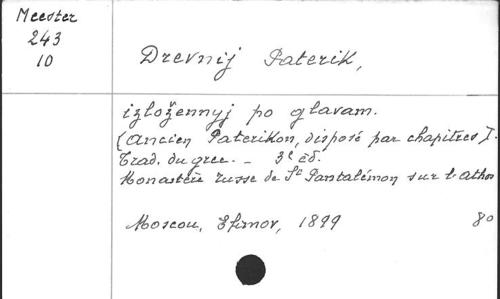 Meester
243
10
Drevnij Paterik,
izložennyj po glavam.
(Ancien Paterikon, disposé par chapitres).
Trad. du grec. - 3e éd.
Monastère russe de St Pantalémon sur l'Athos
Moscou, Efimov, 1899 80